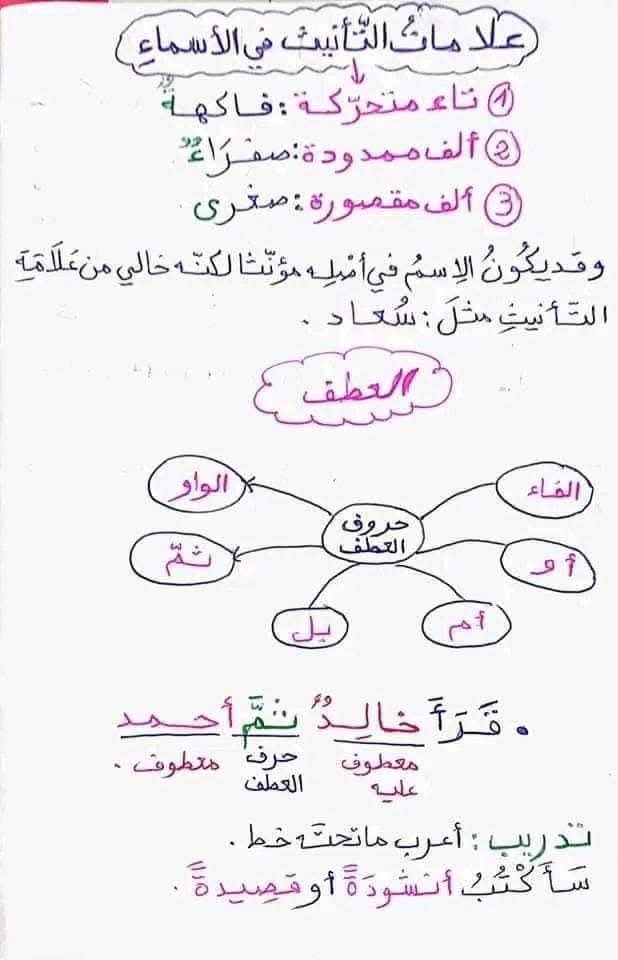 علاماتُ التَّأنيث في الأسماءِ
① تاء متحرّكة : فاكهةٌ
② ألف ممدودة : صفرَاءٌ
③ ألف مقصورة : صغرى
وقد يكُونُ الِاسمُ في أصْلِه مؤنّثا لكنّه خالي من عَلَامَةِ
التّأنيثِ مثلَ : سُعاد .
العطف
الفاء
الواو
حروف
العطف
أو
ثمّ
أم
بل
. قَرَأَ خالِدٌ ثمَّ أحمد
معطوف عليه
حرف العطف
معطوف .
تدريب : أعرب ماتحتَه خط .
سَأَكْتُبُ أنشودَةً أو قصِيدةً .